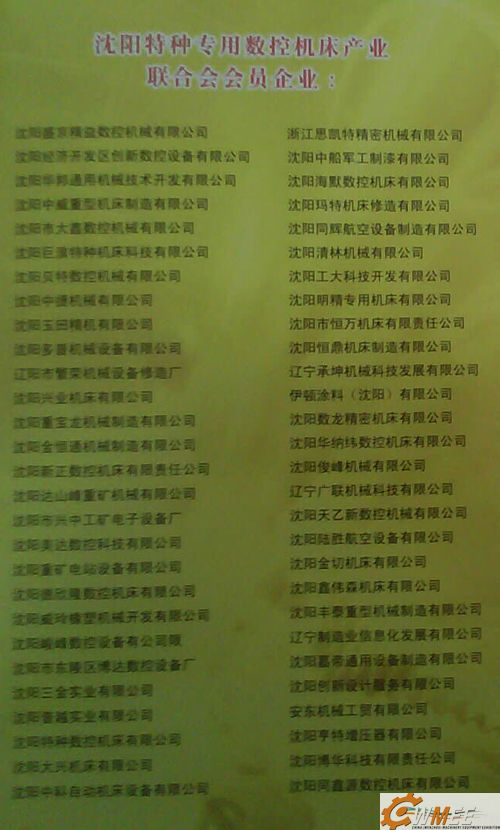 沈阳特种专用数控机床产业
联合会会员企业：
沈阳盛京精益数控机械有限公司
沈阳经济开发区创新数控设备有限公司
沈阳华邦通用机械技术开发有限公司
沈阳中威重型机床制造有限公司
沈阳市大鑫数控机械有限公司
沈阳巨浪特种机床科技有限公司
沈阳贝特数控机械有限公司
沈阳中捷机械有限公司
沈阳玉田精机有限公司
沈阳多普机械设备有限公司
辽阳市繁荣机械设备修造厂
沈阳兴业机床有限公司
沈阳重宝龙机械制造有限公司
沈阳金恒通机械制造有限公司
沈阳新正数控机床有限责任公司
沈阳达山峰重矿机械有限公司
沈阳市兴中工矿电子设备厂
沈阳美达数控科技有限公司
沈阳重矿电站设备有限公司
沈阳德欣隆数控机床有限公司
沈阳威玲橡塑机械开发有限公司
沈阳峻峰数控设备有公司限
沈阳市东陵区博达数控设备厂
沈阳三金实业有限公司
沈阳普越实业有限公司
沈阳特种数控机床有限公司
沈阳大兴机床有限公司
沈阳中科自动机床设备有限公司
浙江恩凯特精密机械有限公司
沈阳中船军工制漆有限公司
沈阳海默数控机床有限公司
沈阳玛特机床修造有限公司
沈阳同辉航空设备制造有限公司
沈阳清林机械有限公司
沈阳工大科技开发有限公司
沈阳明精专用机床有限公司
沈阳市恒万机床有限责任公司
沈阳恒鼎机床制造有限公司
辽宁承坤机械科技发展有限公司
伊顿涂料（沈阳）有限公司
沈阳数龙精密机床有限公司
沈阳华纳纬数控机床有限公司
沈阳俊峰机械有限公司
辽宁广联机械科技有限公司
沈阳天乙新数控机械有限公司
沈阳陆胜航空设备有限公司
沈阳金切机床有限公司
沈阳鑫伟森机床有限公司
沈阳丰泰重型机械制造有限公司
辽宁制造业信息化发展有限公司
沈阳嘉帝通用设备制造有限公司
沈阳创新设计服务有限公司
安东机械工贸有限公司
沈阳亨特增压器有限公司
沈阳博华科技有限责任公司
沈阳同鑫源数控机床有限公司
CWMEE